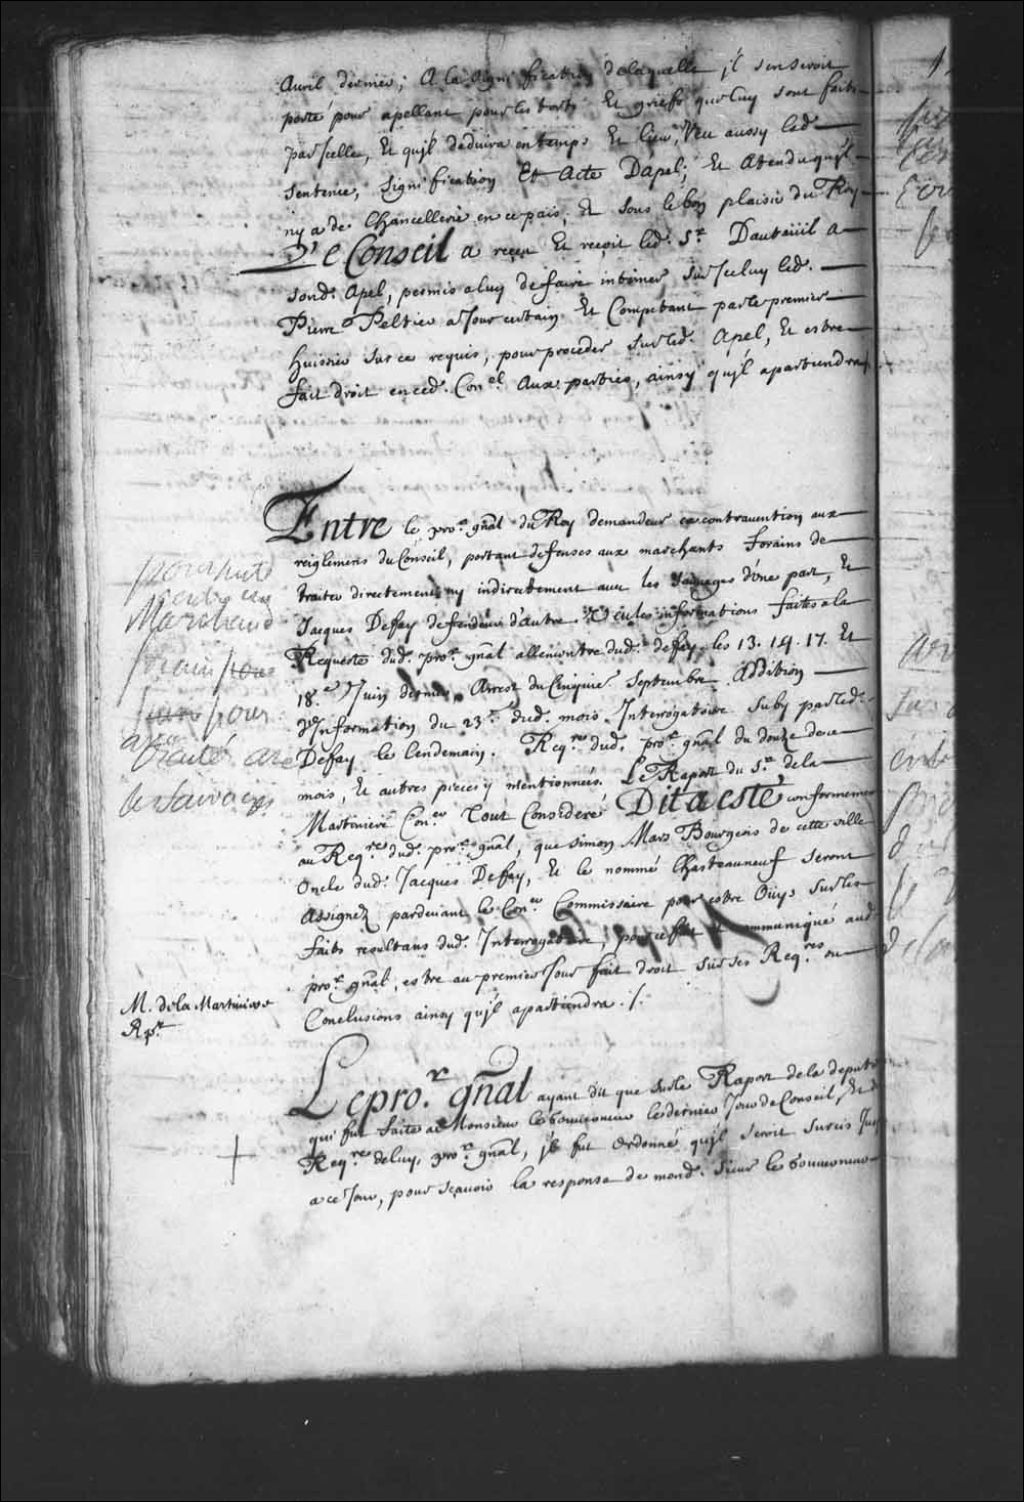 Auril dernier; A la signification delaquelle jl seroit
porté pour apellant pour les torts Et griefs que luy sont faits
par Jcelle, Et qu'jl deduira en temps Et lieu, Veu aussy led.
sentence, signiffication Et Acte Dapel; Et Atendu qu'jl
ny a de Chancellerie en ce pais, Et sous le bon plaisir du Roy
Le Conseil a receu Et reçoit led. Sr. Dauteüil a
sond. Apel, permis a luy de faire intimer sur Jceluy led.
Pierre Peltier a Jour certain Et Competant par le premier
huissier sur ce requis, pour proceder sur led. Apel, Et estre
fait droit en ced. Conel. Aux parties, ainsy qu'jl apartiendra
Entre le pror. gñal du Roy demandeur en contrauention aux
reiglemens du Conseil, portant defenses aux marchants forains de
traiter directement ny indirectement auec les sauuages d'une part, Et
Jacques Deffay defendeur d'autre. Veu les informations faites a la
Requeste dud. pror. gñal allencontre dud. deffay les 13. 14. 17. Et
18.e Juin dernier Arrest du Cinquie. Septembre Addition
d'Information du 23.e dud. mois. Interrogatoire suby par led.
Deffay le lendemain. Reqre. dud. pror. gñal du douze de ce
mois, Et autres pieces y mentionnées. Le Raport du Sr. dela
Martiniere Coner. Tout Considere Dit a esté conformement
au Reqre. dud. pror. gñal, que simon Mars Bourgeois de cette ville
Oncle dud. Jacques Deffay, Et le nommé Chasteauneuf seront
Assignez pardeuant le Coner. Commissaire pour estre Oüys sur les
faits resultans dud. Interrogatoire, pour ce fait Et communiqué aud.
pror. gñal, estre au premier Jour fait droit sur ses Reqres. ou
Conclusions ainsy qu'jl apartiendra ./.
poursuite
contre un
Marchand
forain pour
avoir
traité avec
les Sauvages
M. dela Martiniere
Rpr.
Le pror. gñal ayant dit que sur le Raport de la deputa
qui fut faite a Monsieur le Gouuerneur le dernier Jour de Conseil, Et
Reqre. de luy, pror. gñal, jl fut Ordonné qu'jl seroit surcis Jusq
a ce Jour, pour sçauoir la response de mond. sieur le Gouuerneur